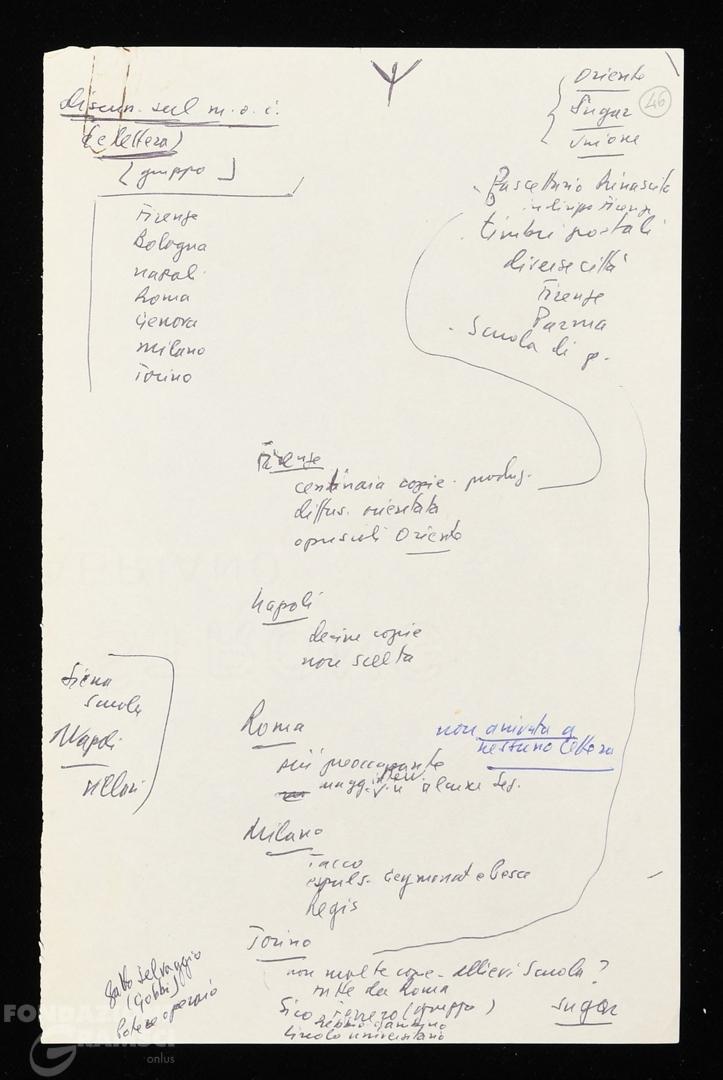 discus. sul m.o.i.
(e lettera)
(gruppo)
Firenze
Bologna
Napoli
Roma
Genova
Milano
Torino
Oriente
Sugar
Unione
46
Rinascita
in liriposte Firenze
timbri postali
diverse città
Firenze
Parma
Scuola di p.
Firenze
centinaia copie - produz.
diffus. orientata
opuscoli Oriente
Napoli
decine copie
non scelta
Siena
scuola
Napoli
Roma
più preoccupante
alcune sez.
non arrivata a
nessuno lettera
Milano
Tacco
espuls. Geymonat e Pesce
Regis
Torino
non molte copie - Allievi Scuola?
tutte da Roma
(gruppo)
Circolo universitario
Sugar
Gatto selvaggio
(Gobbi)
Potere operaio
FONDAZIONE
GRAMSCI
onlus